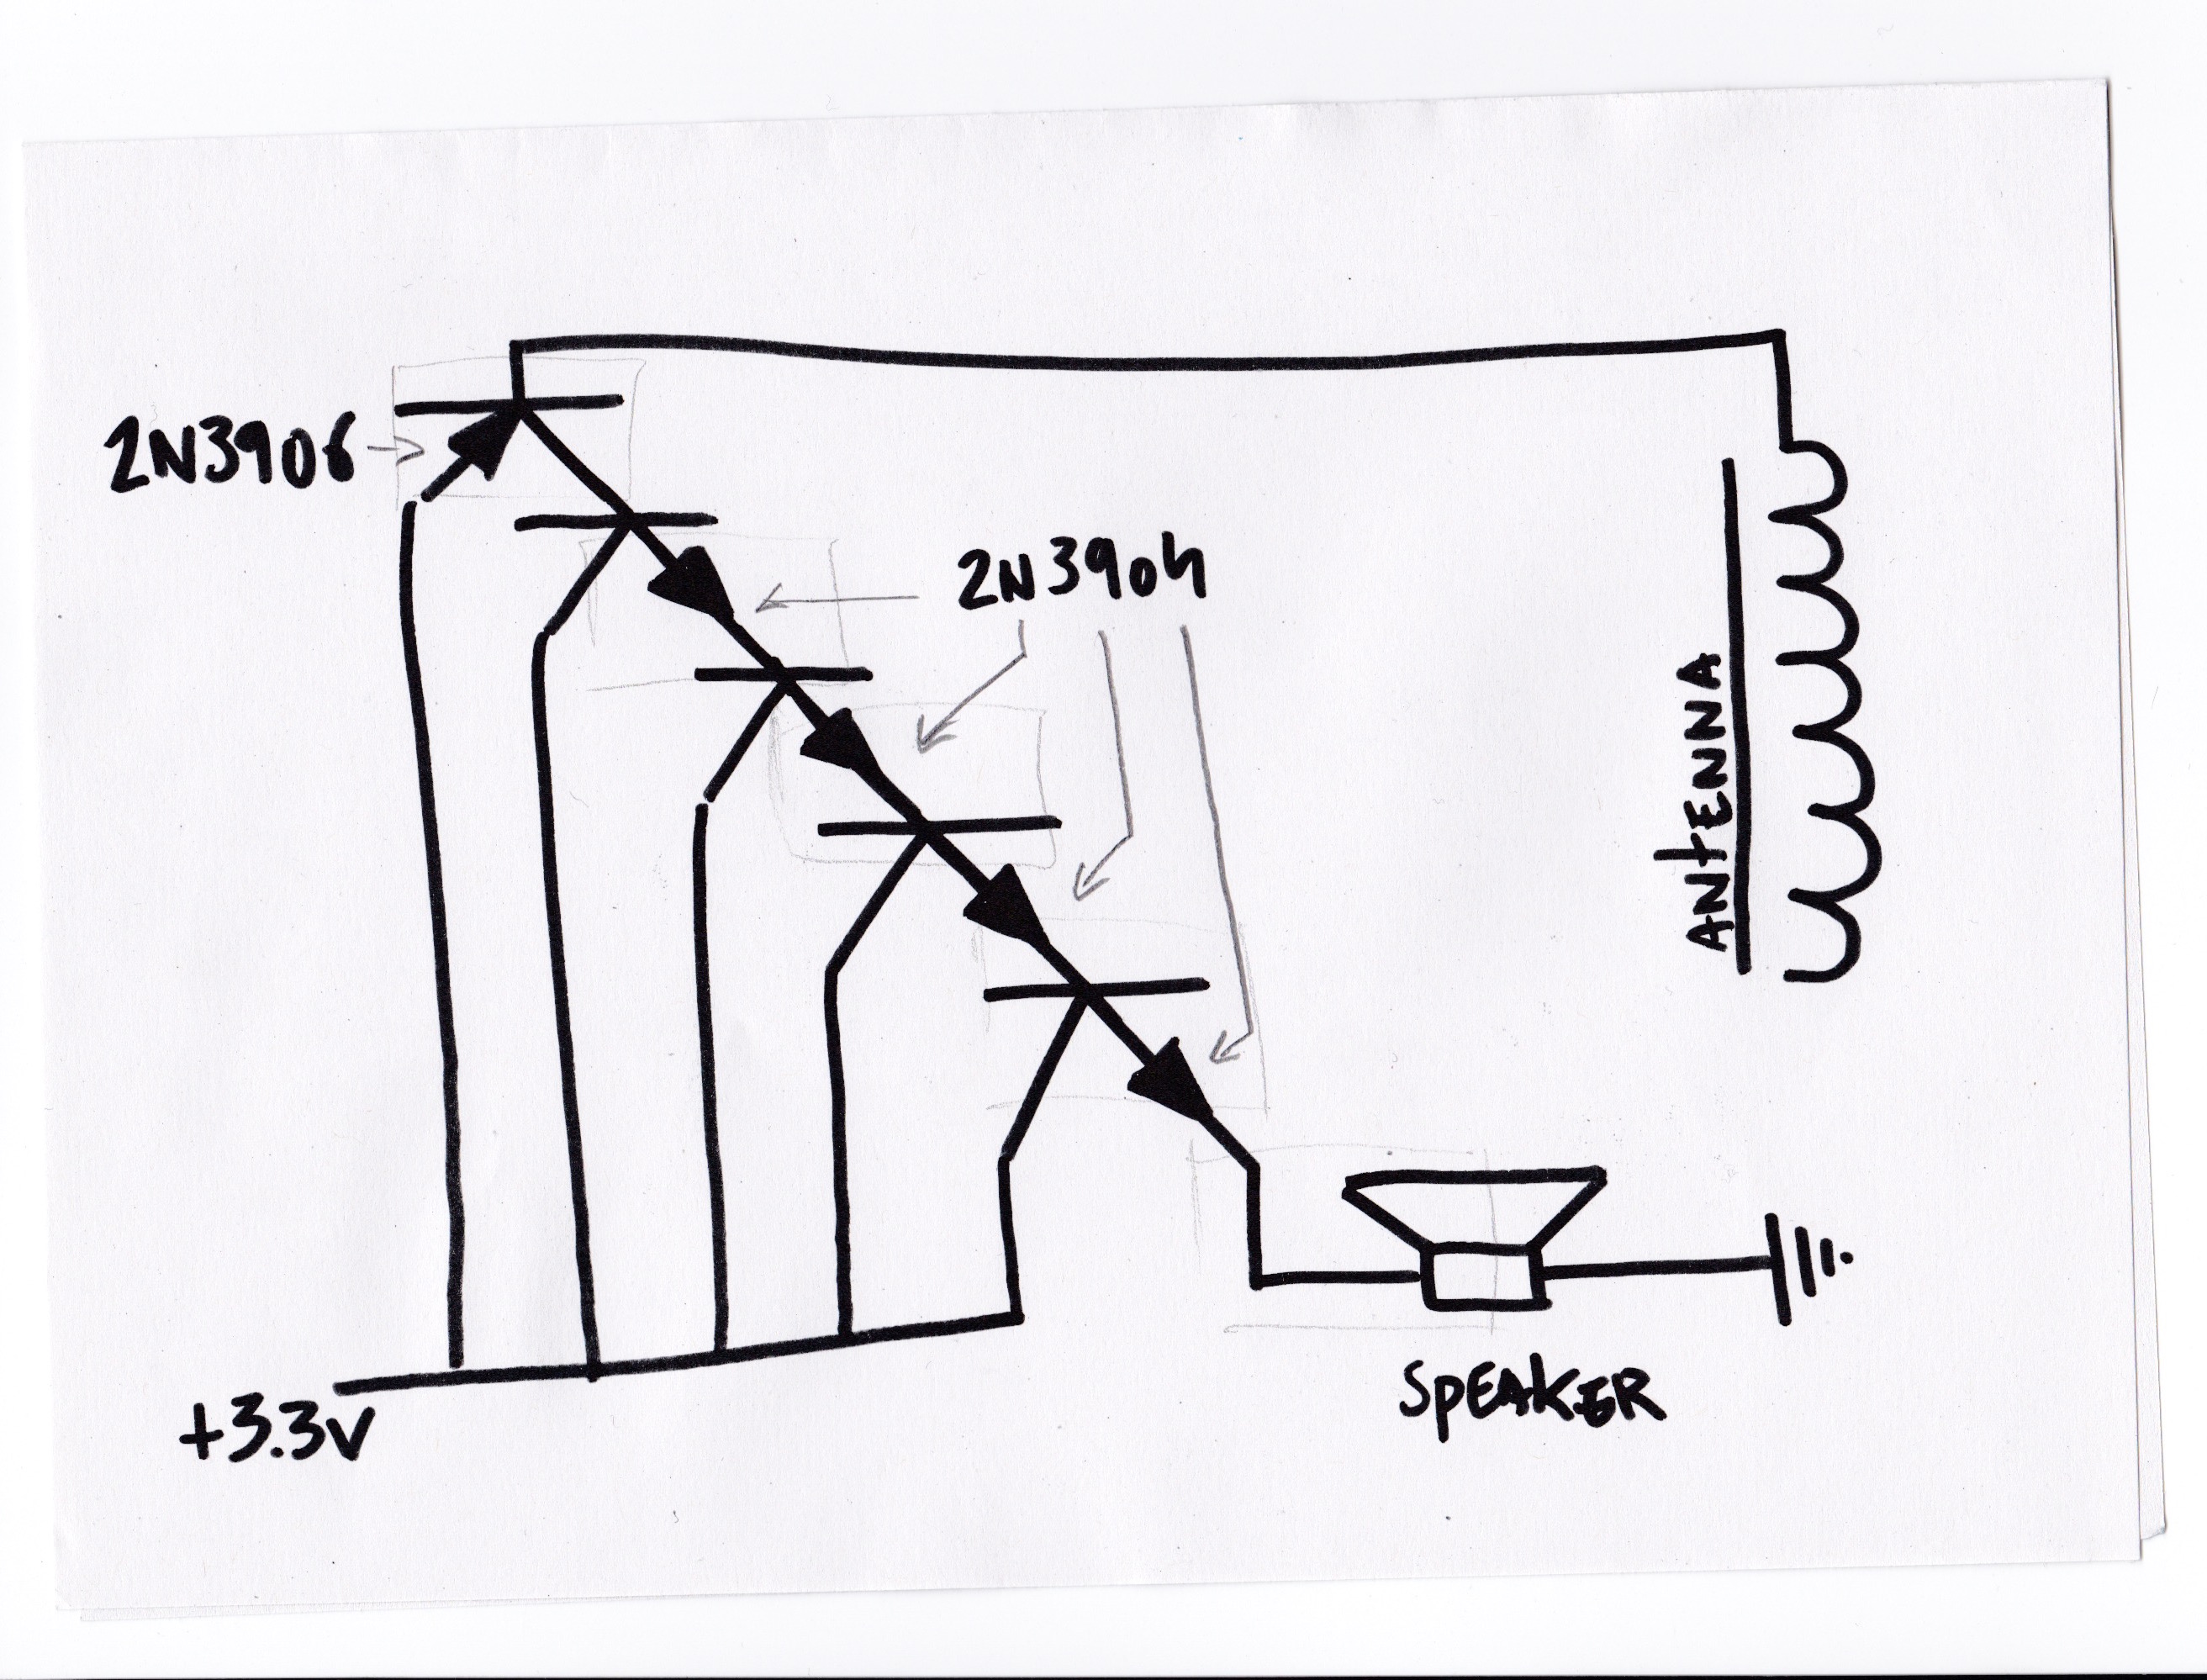 2N3906
2N3904
ANTENNA
SPEAKER
+3.3V